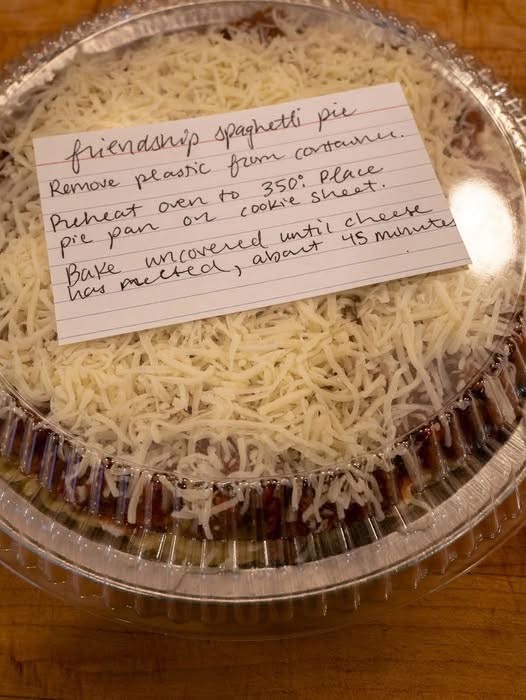 friendship spaghetti pie
Remove plastic from container.
Preheat oven to 350°. Place
pie pan on cookie sheet.
Bake uncovered until cheese
has melted, about 45 minutes